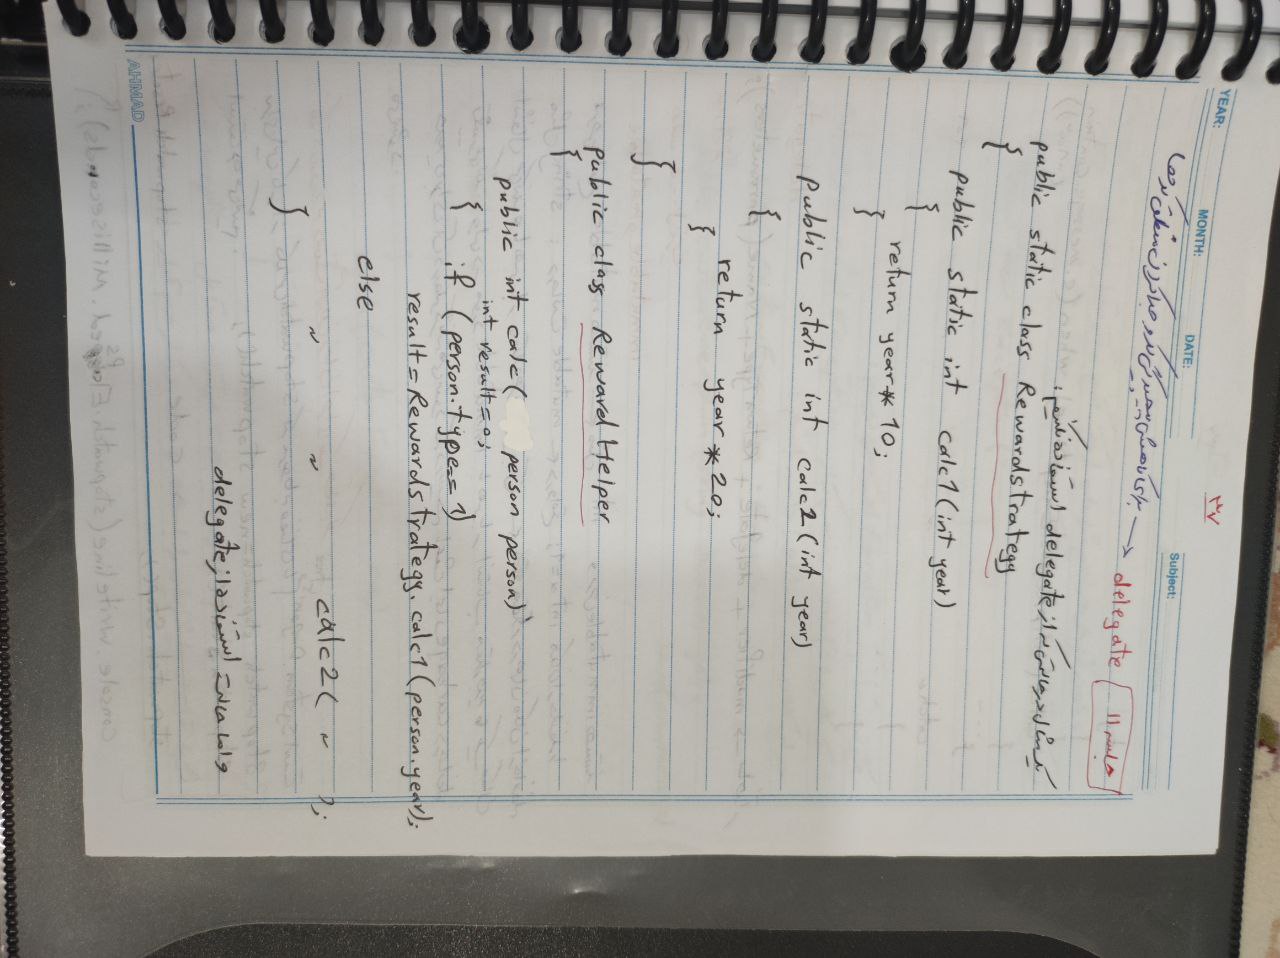 ۳۷
YEAR:
MONTH:
DATE:
Subject:
جلسه ۱۱ delegate → برای کاهش پیچیدگی کد و جدا کردن منطق کدها
یک مثال در حالتی که از delegate استفاده نکنیم:
public static class Rewardstrategy
{
public static int calc1(int year)
{
return year * 10;
}
public static int calc2(int year)
{
return year * 20;
}
}
public class Reward Helper
{
public int calc( person person)
int result = 0;
{ if (person.type == 1)
result = Rewardstrategy.calc1(person.year);
else
~ ~ calc2( ~ );
}
و اما حالت استفاده از delegate
AHMAD